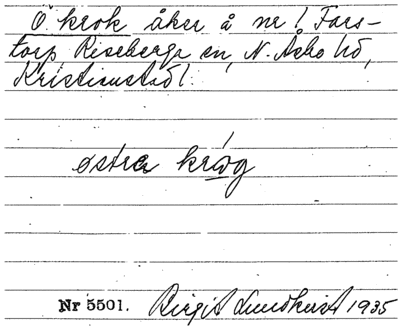 Ö. krok åker å nr 1 Fars-
torp Riseberga sn, N. Åsbo hd,
Kristianstad l.
østra krög
Nr 5501. Birgit Lundkvist 1935